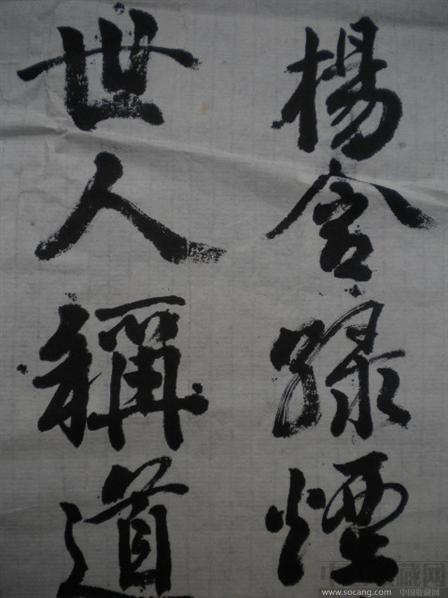 楊含綠煙
世人稱道
www.socang.com 中国收藏网